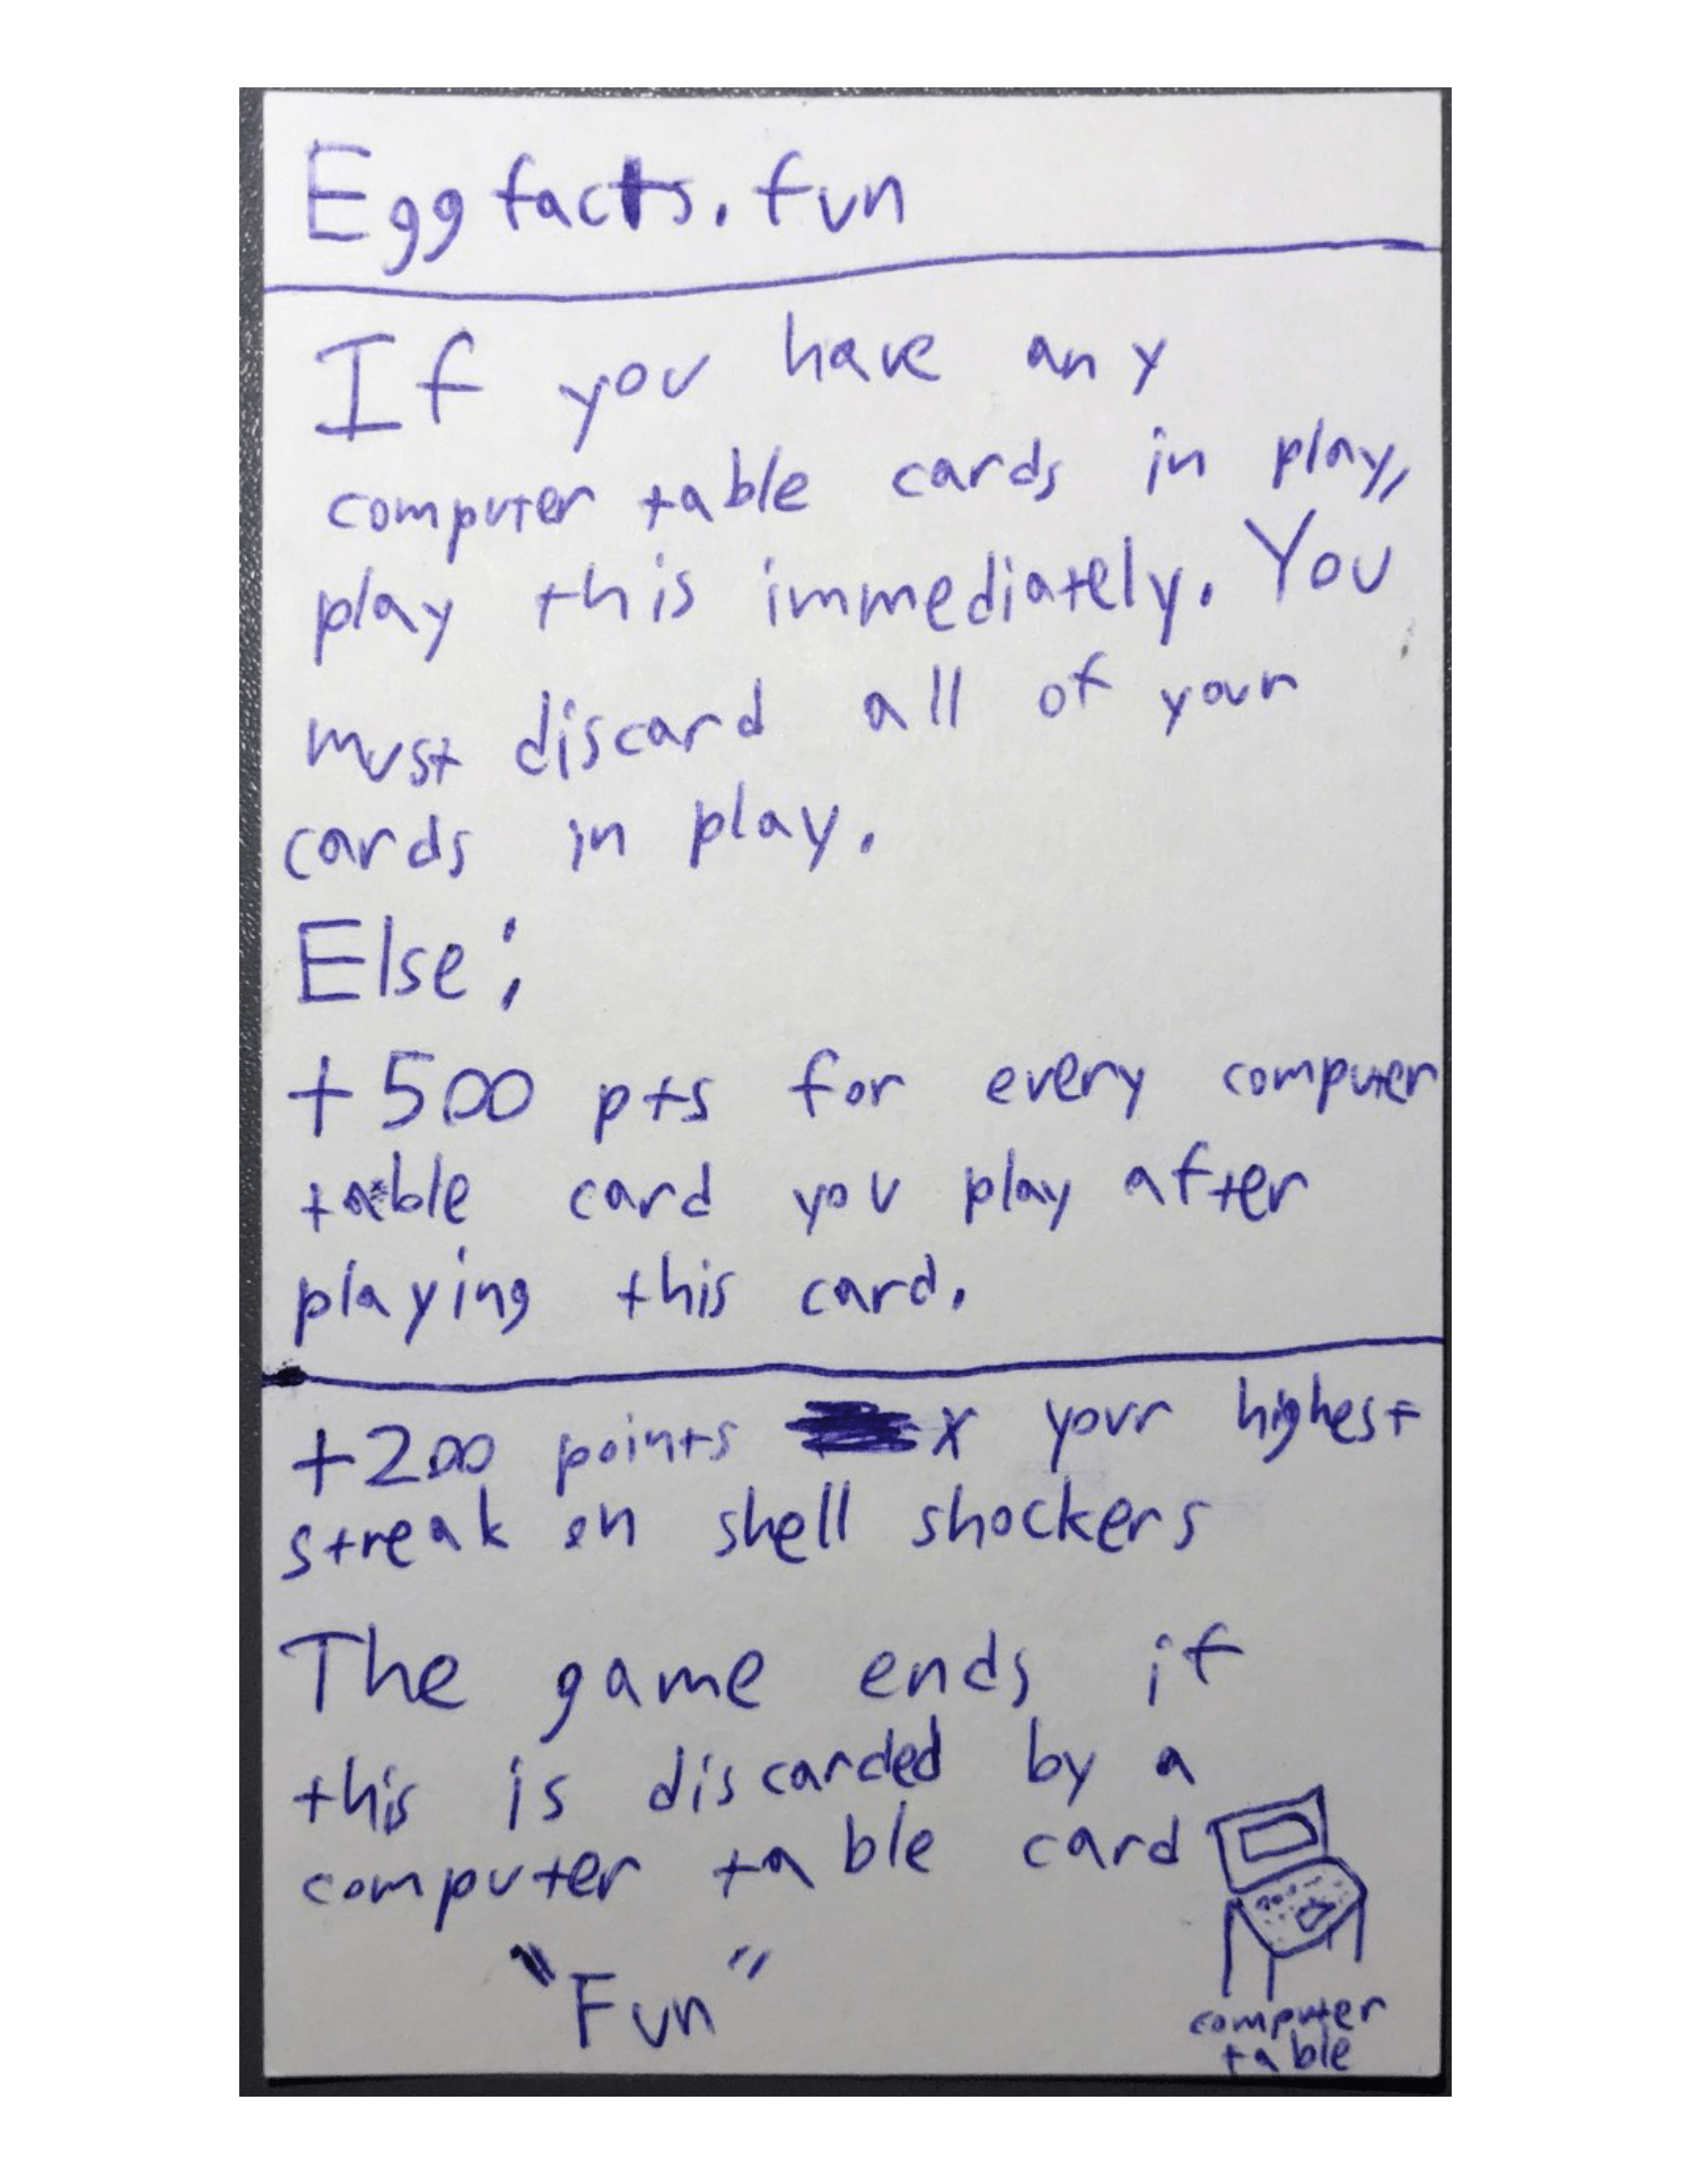 Egg facts.fun
If you have any
computer table cards in play,
play this immediately. You
must discard all of your
cards in play.
Else:
+500 pts for every computer
table card you play after
playing this card.
+200 points x your highest
streak on shell shockers
The game ends if
this is discarded by a
computer table card
"Fun"
computer
table